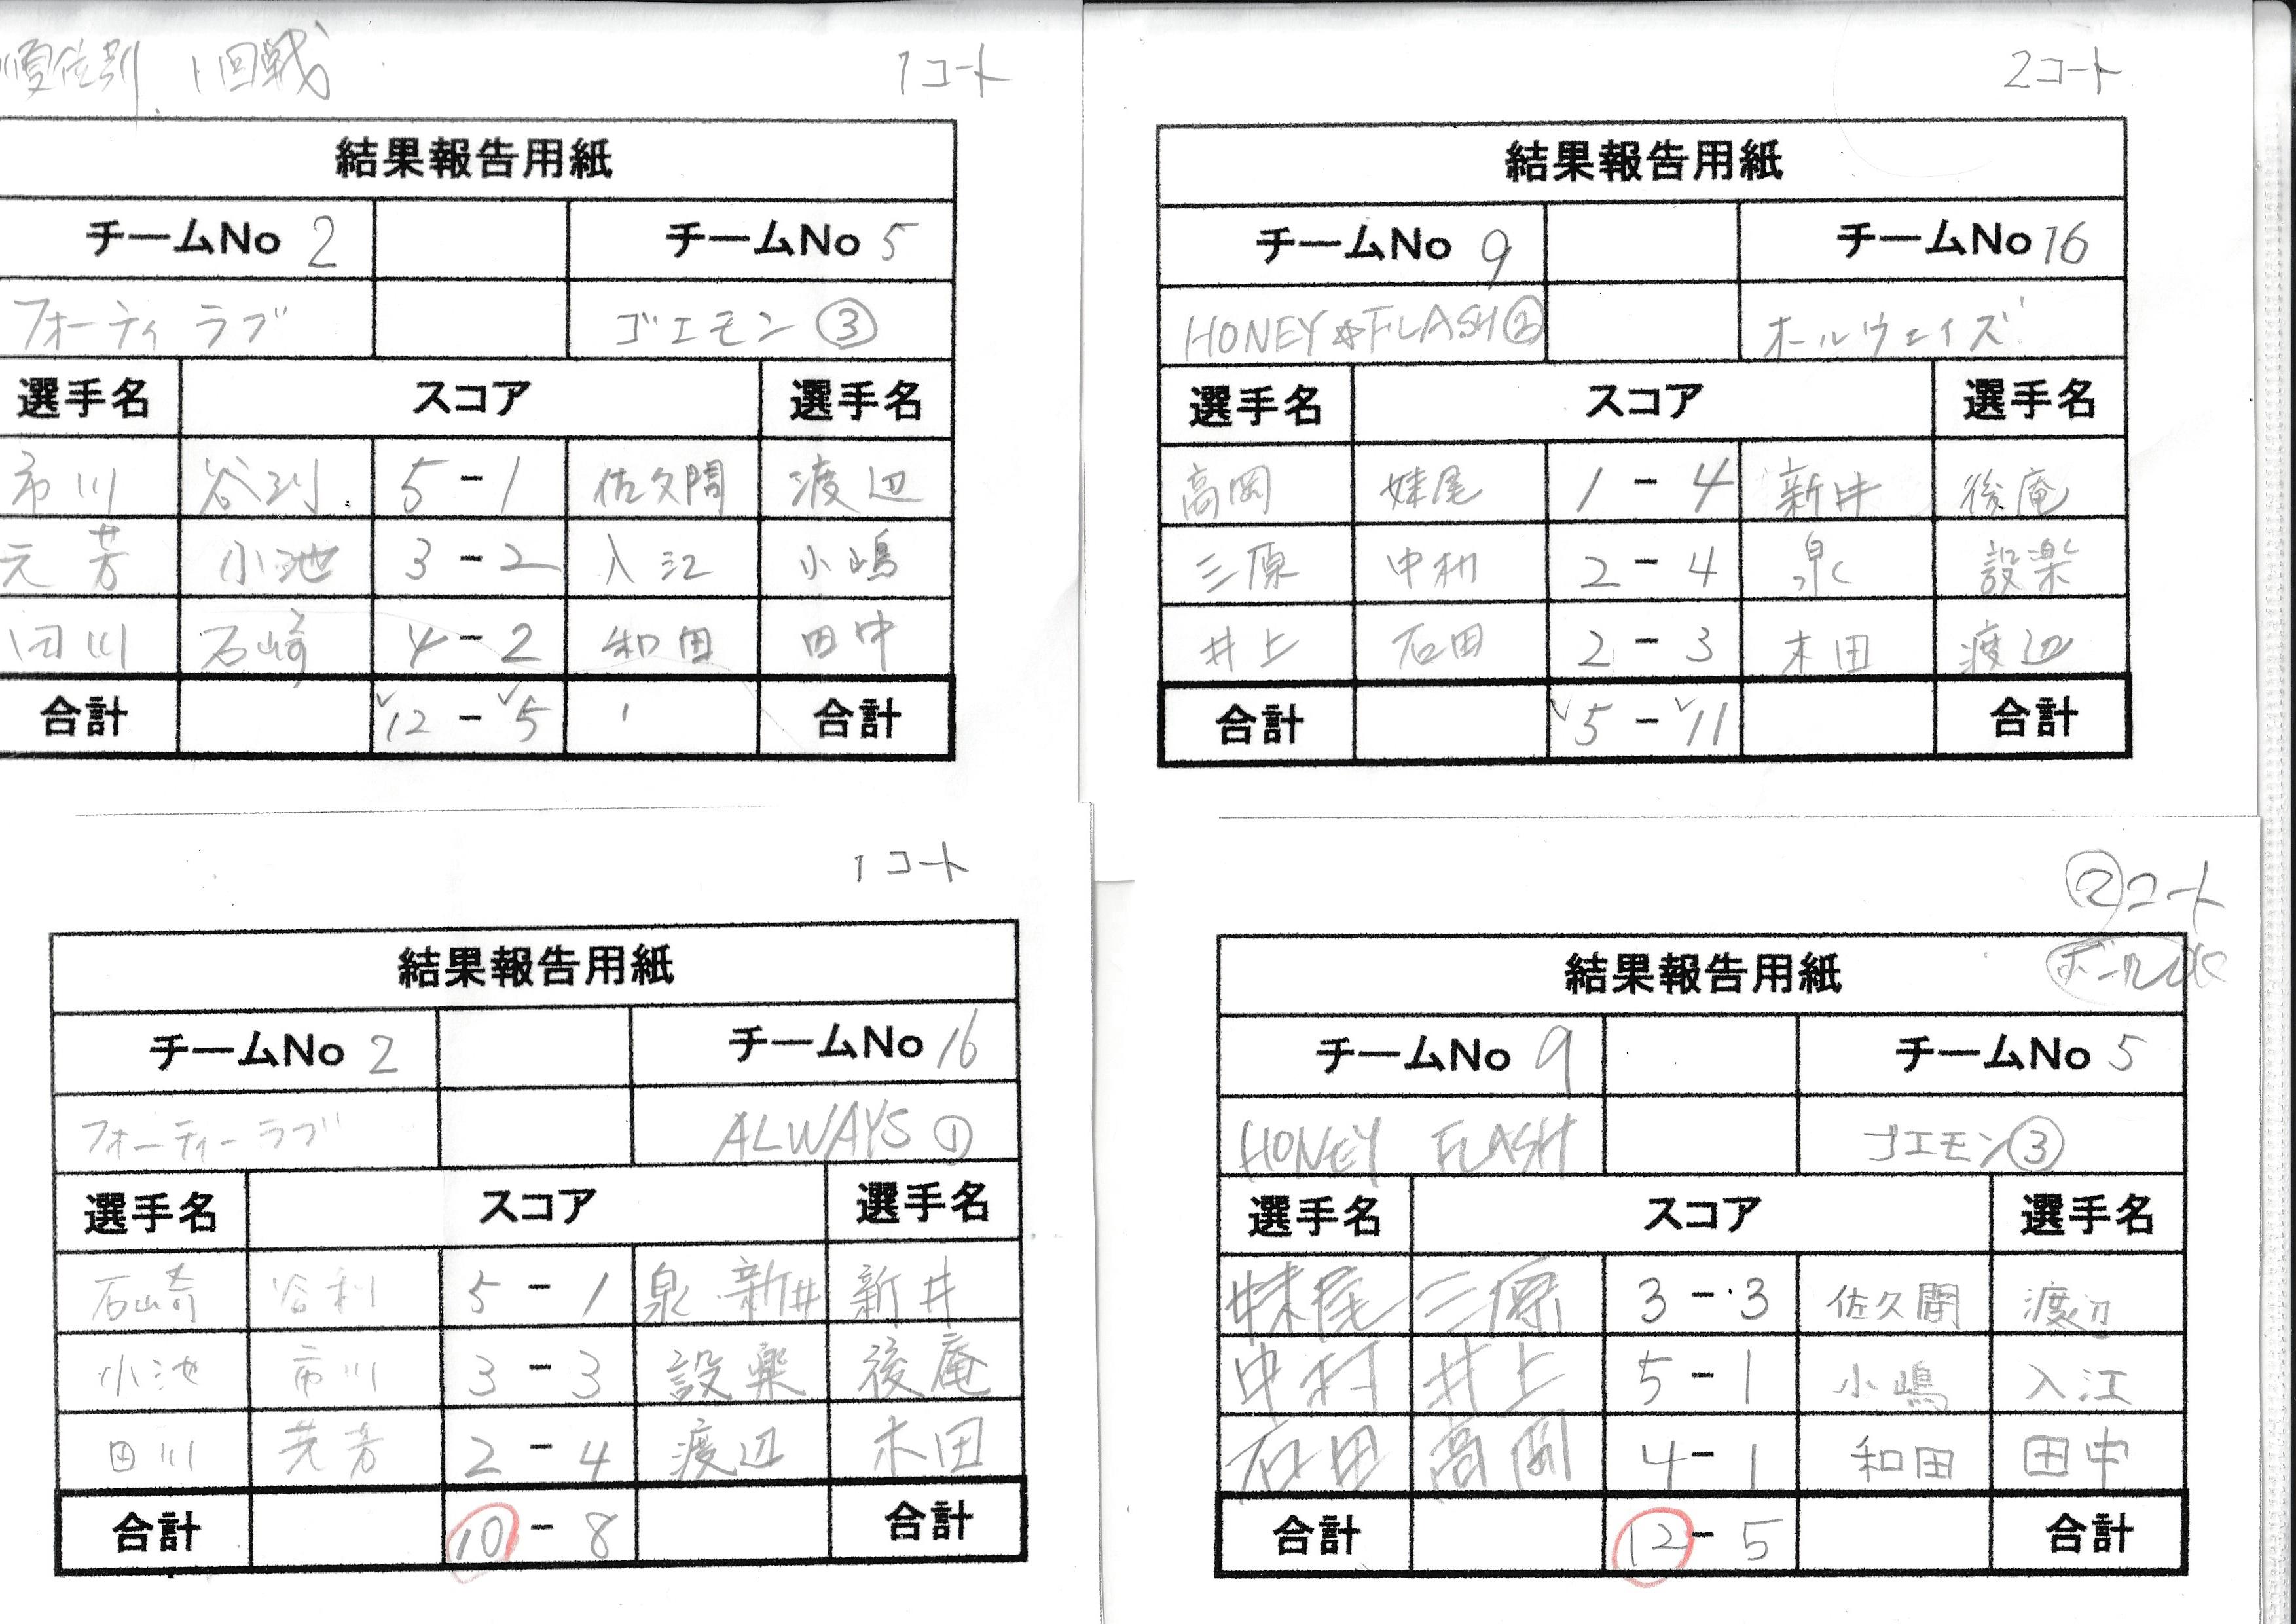 順位別 1回戦
1コート
結果報告用紙
チームNo 2 チームNo 5
フォーティ ラブ ゴエモン ③
選手名 スコア 選手名
市川 谷利 5 - 1 佐久間 渡辺
元芳 小池 3 - 2 入江 小嶋
田川 石崎 4 - 2 和田 田中
合計 12 - 5 合計
2コート
結果報告用紙
チームNo 9 チームNo 16
HONEY☆FLASH② オールウェイズ
選手名 スコア 選手名
高岡 妹尾 1 - 4 新井 後庵
三原 中村 2 - 4 泉 設楽
井上 石田 2 - 3 木田 渡辺
合計 5 - 11 合計
1コート
結果報告用紙
チームNo 2 チームNo 16
フォーティーラブ ALWAYS ①
選手名 スコア 選手名
石崎 谷利 5 - 1 泉 新井 新井
小池 市川 3 - 3 設楽 後庵
田川 元芳 2 - 4 渡辺 木田
合計 10 - 8 合計
②コート
結果報告用紙
チームNo 9 チームNo 5
HONEY FLASH ゴエモン③
選手名 スコア 選手名
妹尾 三原 3 - 3 佐久間 渡辺
中村 井上 5 - 1 小嶋 入江
石田 高岡 4 - 1 和田 田中
合計 12 - 5 合計